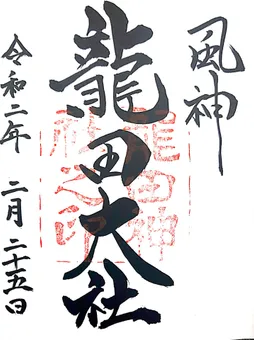 風神
龍田大社
龍田神
社之印
令和二年 二月二十五日